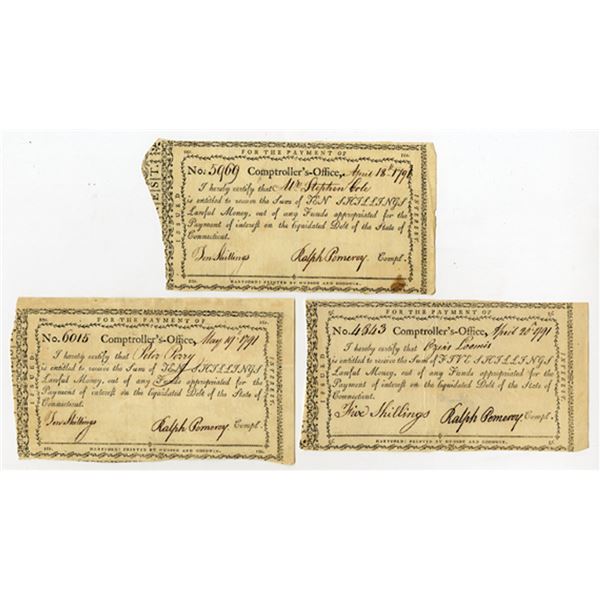 FOR THE PAYMENT OF
No. 5969 Comptroller's-Office, April 18th 1791
I hereby certify that Mr. Stephen Cole
is entitled to receive the Sum of TEN SHILLINGS
Lawful Money, out of any Funds appropriated for the
Payment of interest on the liquidated Debt of the State of
Connecticut.
Ten Shillings Ralph Pomeroy Compt.
HARTFORD: PRINTED BY HUDSON AND GOODWIN.
ISSUED
INTEREST.
FOR THE PAYMENT OF
No. 6015 Comptroller's-Office, May 19th 1791
I hereby certify that Peter Perry
is entitled to receive the Sum of TEN SHILLINGS
Lawful Money, out of any Funds appropriated for the
Payment of interest on the liquidated Debt of the State of
Connecticut.
Ten Shillings Ralph Pomeroy Compt.
HARTFORD: PRINTED BY HUDSON AND GOODWIN.
INTEREST.
FOR THE PAYMENT OF
No. 4643 Comptroller's-Office, April 20th 1791
I hereby certify that Ozias Loomis
is entitled to receive the Sum of FIVE SHILLINGS
Lawful Money, out of any Funds appropriated for the
Payment of interest on the liquidated Debt of the State of
Connecticut.
Five Shillings Ralph Pomeroy Compt.
HARTFORD: PRINTED BY HUDSON AND GOODWIN.
ISSUED
INTEREST.